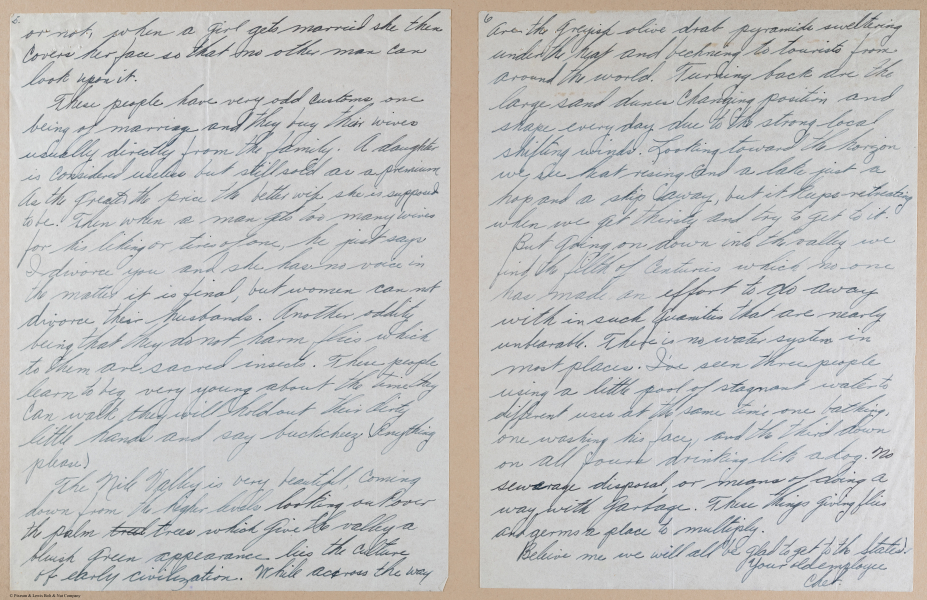 5.
or not, when a girl gets married she then
covers her face so that no other man can
look upon it.
These people have very odd customs, one
being of marriage and they buy their wives
usually directly from the family. A daughter
is considered useless but still sold as a premium
As the greater the price the better wife she is supposed
to be. Then when a man gets too many wives
for his liking or tires of one, he just says
I divorce you and she has no voice in
the matter it is final, but women can not
divorce their husbands. Another oddity
being that they do not harm flies which
to them are sacred insects. These people
learn to beg very young about the time they
can walk they will hold out their dirty
little hands and say buckcheez (Anything
please)
The Nile Valley is very beautiful, coming
down from the higher levels looking out over
the palm trees which give the valley a
bluish green appearance lies the culture
of early civilization. While across the way
6
are the greyish olive drab pyramids sweltering
under the heat and beckning to tourists from
around the world. Turning back are the
large sand dunes changing position and
shape every day due to the strong local
shifting winds. Looking toward the horizon
we see that rising and a lake just a
hop and a skip away, but it keeps retreating
when we get thirsty and try to get to it.
But going on down into the valley we
find the filth of centuries which no-one
has made an effort to do away
with in such quanities that are nearly
unbearable. There is no water system in
most places. I've seen three people
using a little pool of stagnant water to
different uses at the same time one bathing,
one washing his face, and the third down
on all fours drinking like a dog. No
sewerage disposal or means of doing a
way with garbage. These things giving flies
and germs a place to multiply.
Believe me we will all be glad to get to the States.
Your old employee
Chet.
© Pittston & Lewis Bolt & Nut Company